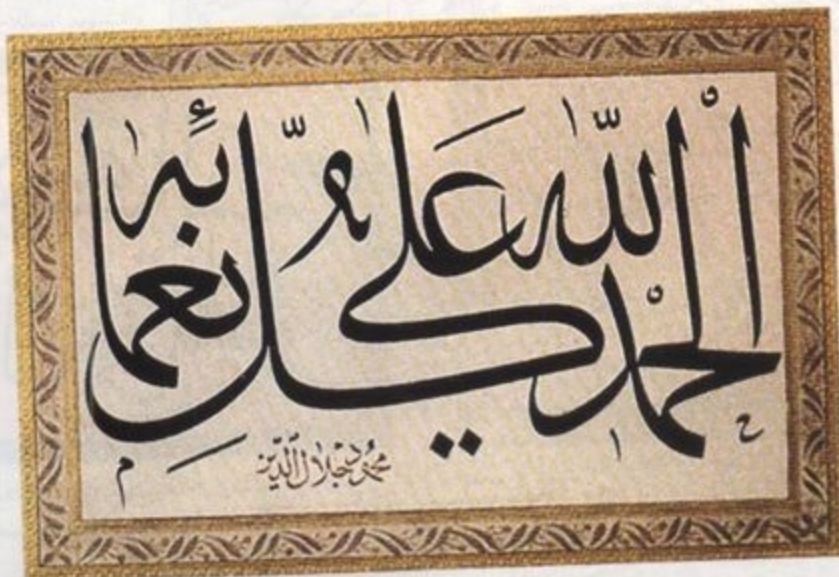 الحمد لله على كل نعمائه
محمود جلال الدين